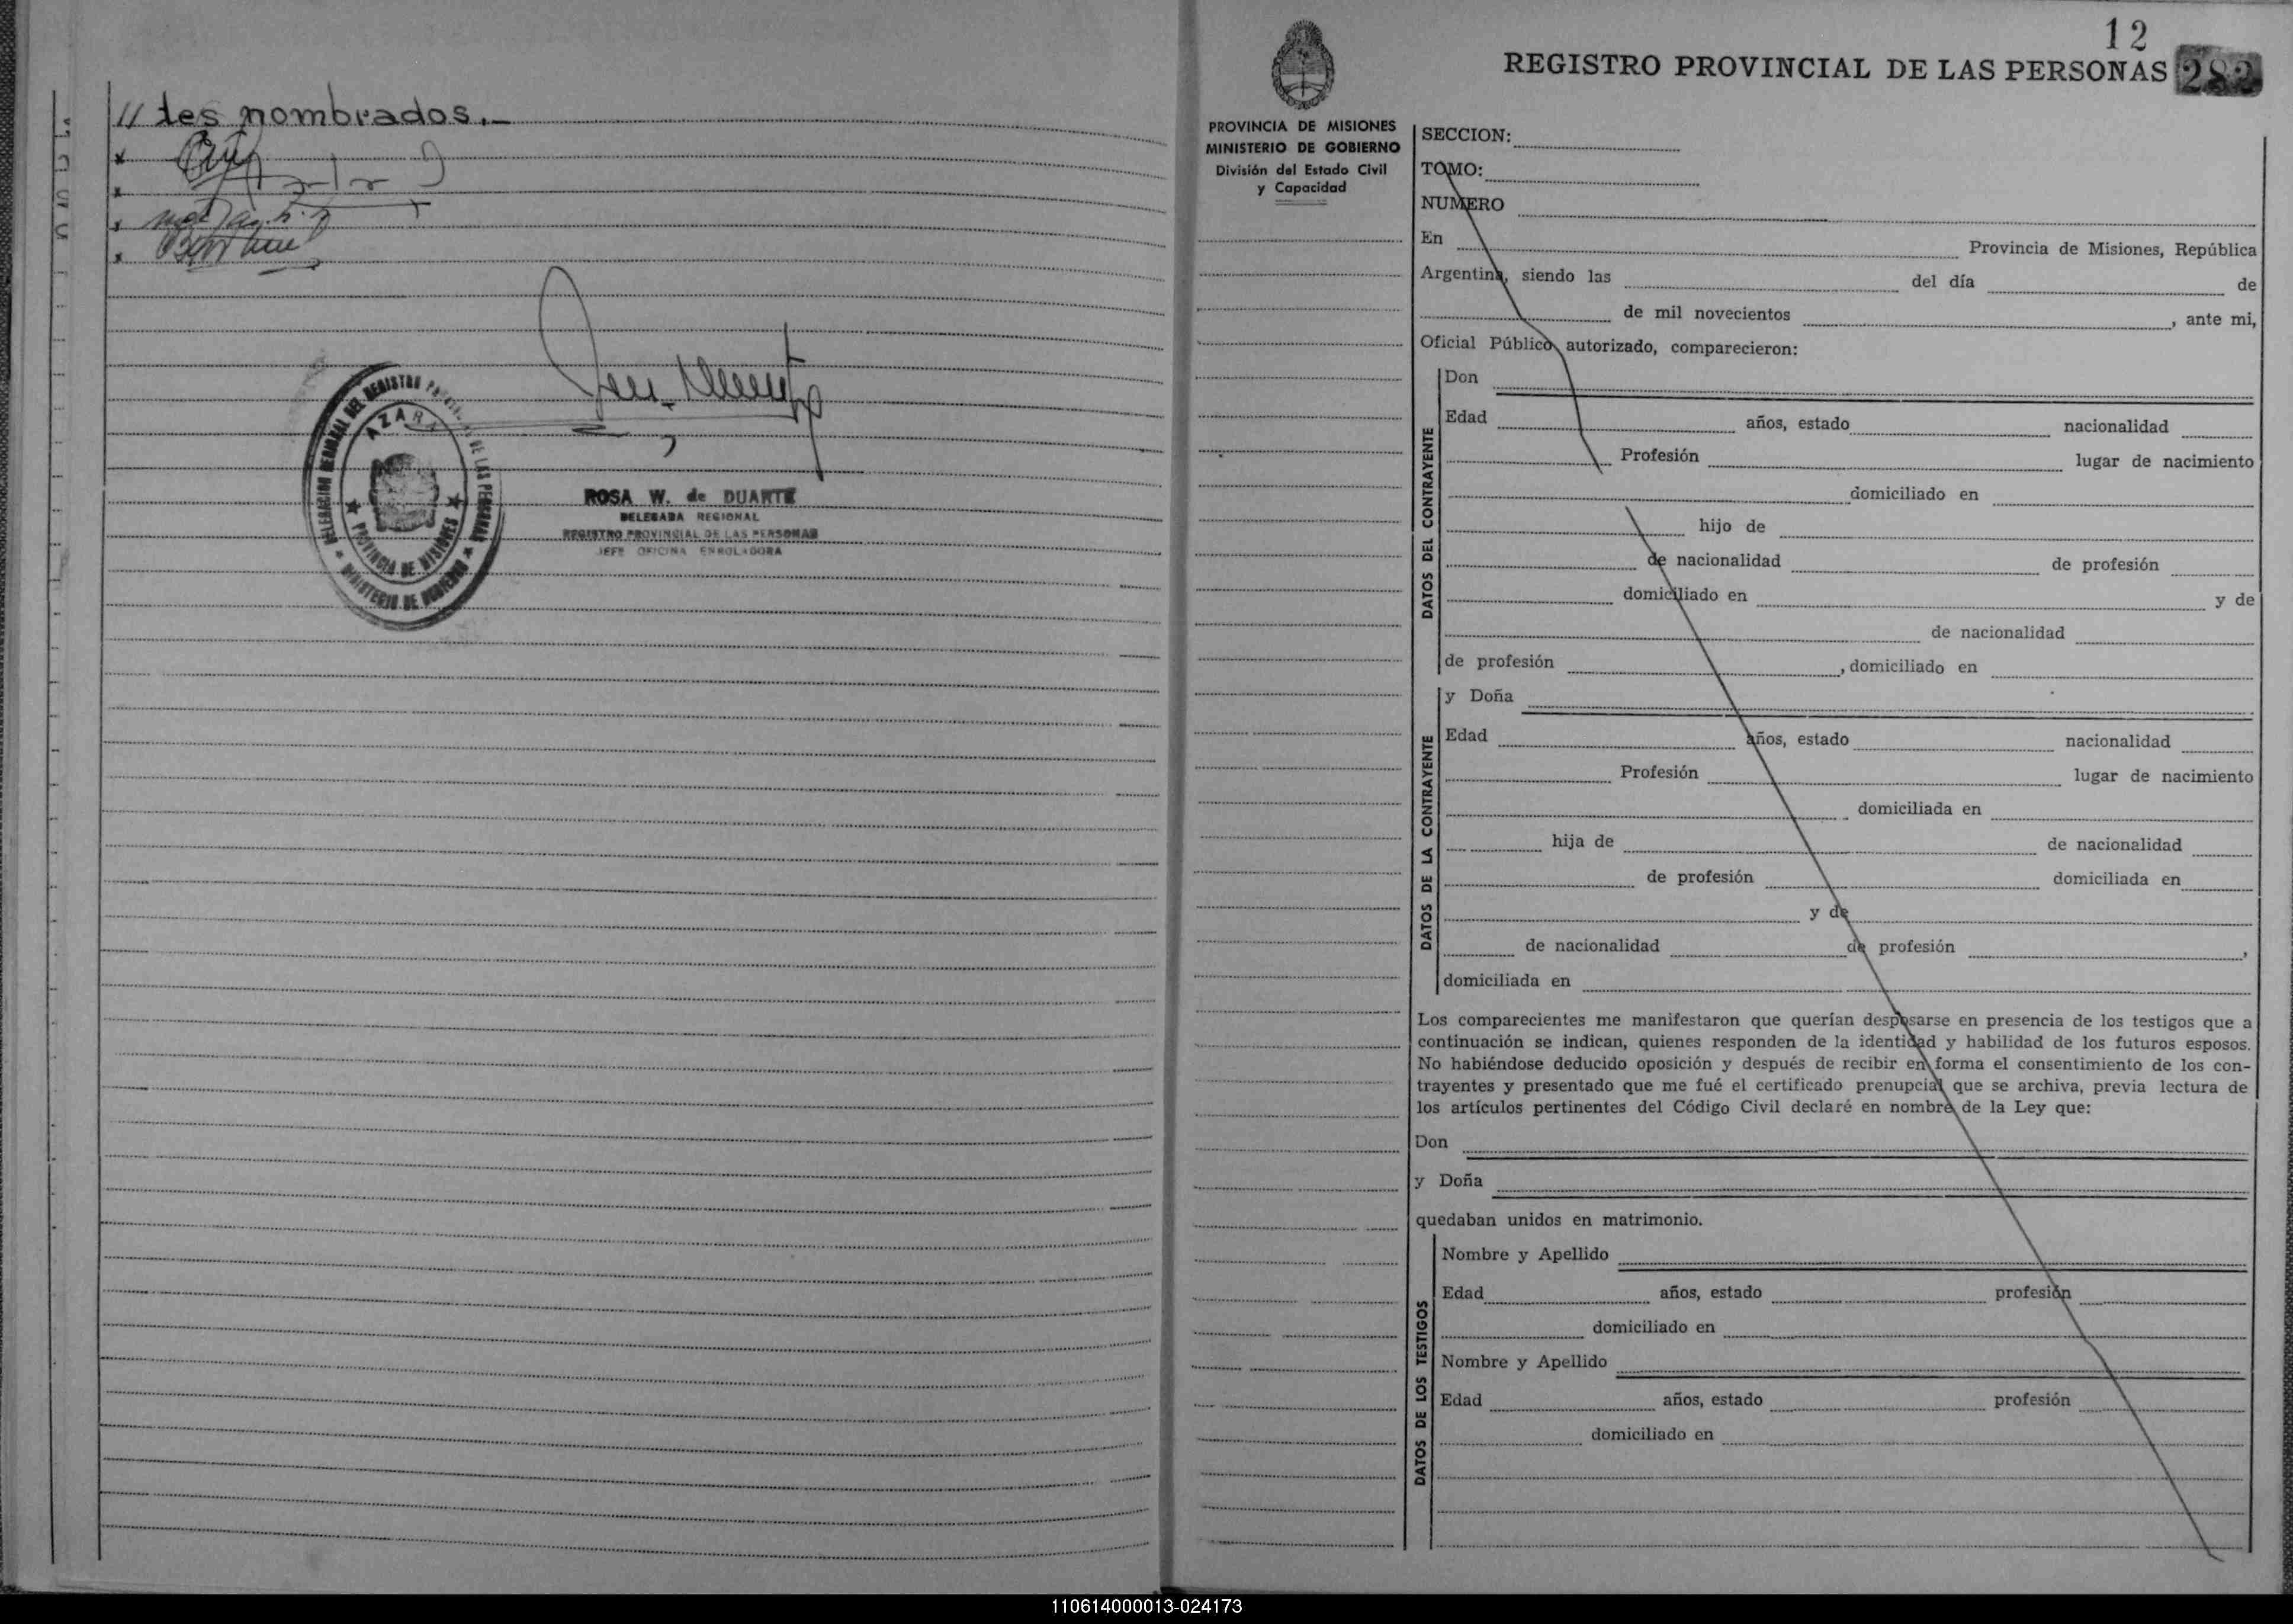 // tes nombrados.-
AZARA
PROVINCIA DE MISIONES
MINISTERIO DE GOBIERNO
ROSA W. de DUARTE
DELEGADA REGIONAL
REGISTRO PROVINCIAL DE LAS PERSONAS
JEFE OFICINA ENROLADORA
12
REGISTRO PROVINCIAL DE LAS PERSONAS 282
PROVINCIA DE MISIONES
MINISTERIO DE GOBIERNO
División del Estado Civil
y Capacidad
SECCION:
TOMO:
NUMERO
En Provincia de Misiones, República
Argentina, siendo las del día de
de mil novecientos , ante mi,
Oficial Público autorizado, comparecieron:
DATOS DEL CONTRAYENTE
Don
Edad años, estado nacionalidad
Profesión lugar de nacimiento
domiciliado en
hijo de
de nacionalidad de profesión
domiciliado en y de
de nacionalidad
de profesión , domiciliado en
DATOS DE LA CONTRAYENTE
y Doña
Edad años, estado nacionalidad
Profesión lugar de nacimiento
domiciliada en
hija de de nacionalidad
de profesión domiciliada en
y de
de nacionalidad de profesión ,
domiciliada en
Los comparecientes me manifestaron que querían desposarse en presencia de los testigos que a
continuación se indican, quienes responden de la identidad y habilidad de los futuros esposos.
No habiéndose deducido oposición y después de recibir en forma el consentimiento de los con-
trayentes y presentado que me fué el certificado prenupcial que se archiva, previa lectura de
los artículos pertinentes del Código Civil declaré en nombre de la Ley que:
Don
y Doña
quedaban unidos en matrimonio.
DATOS DE LOS TESTIGOS
Nombre y Apellido
Edad años, estado profesión
domiciliado en
Nombre y Apellido
Edad años, estado profesión
domiciliado en
110614000013-024173